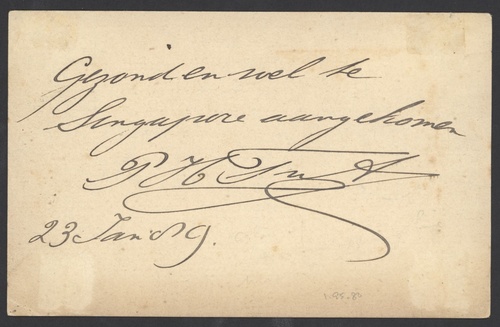 Gezond en wel te
Singapore aangekomen
P H
23 Jan 89.